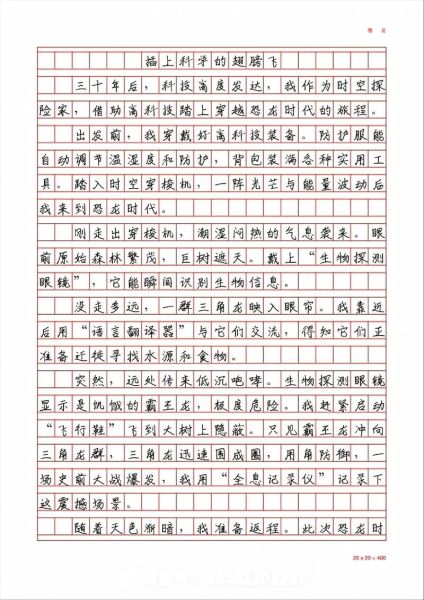 插上科学的翅膀飞
三十年后，科技高度发达，我作为时空探
险家，借助高科技踏上穿越恐龙时代的旅程。
出发前，我穿戴好高科技装备。防护服能
自动调节温湿度和防护，背包装满各种实用工
具。踏入时空穿梭机，一阵光芒与能量波动后
我来到恐龙时代。
刚走出穿梭机，潮湿闷热的气息袭来。眼
前原始森林繁茂，巨树遮天。戴上“生物探测
眼镜”，它能瞬间识别生物信息。
没走多远，一群三角龙映入眼帘。我靠近
后用“语言翻译器”与它们交流，得知它们正
准备迁徙寻找水源和食物。
突然，远处传来低沉咆哮。生物探测眼镜
显示是饥饿的霸王龙，极度危险。我赶紧启动
“飞行鞋”飞到大树上隐蔽。只见霸王龙冲向
三角龙群，三角龙迅速围成圈，用角防御，一
场史前大战爆发，我用“全息记录仪”记录下
这震撼场景。
随着天色渐暗，我准备返程。此次恐龙时
20 x 20 = 400